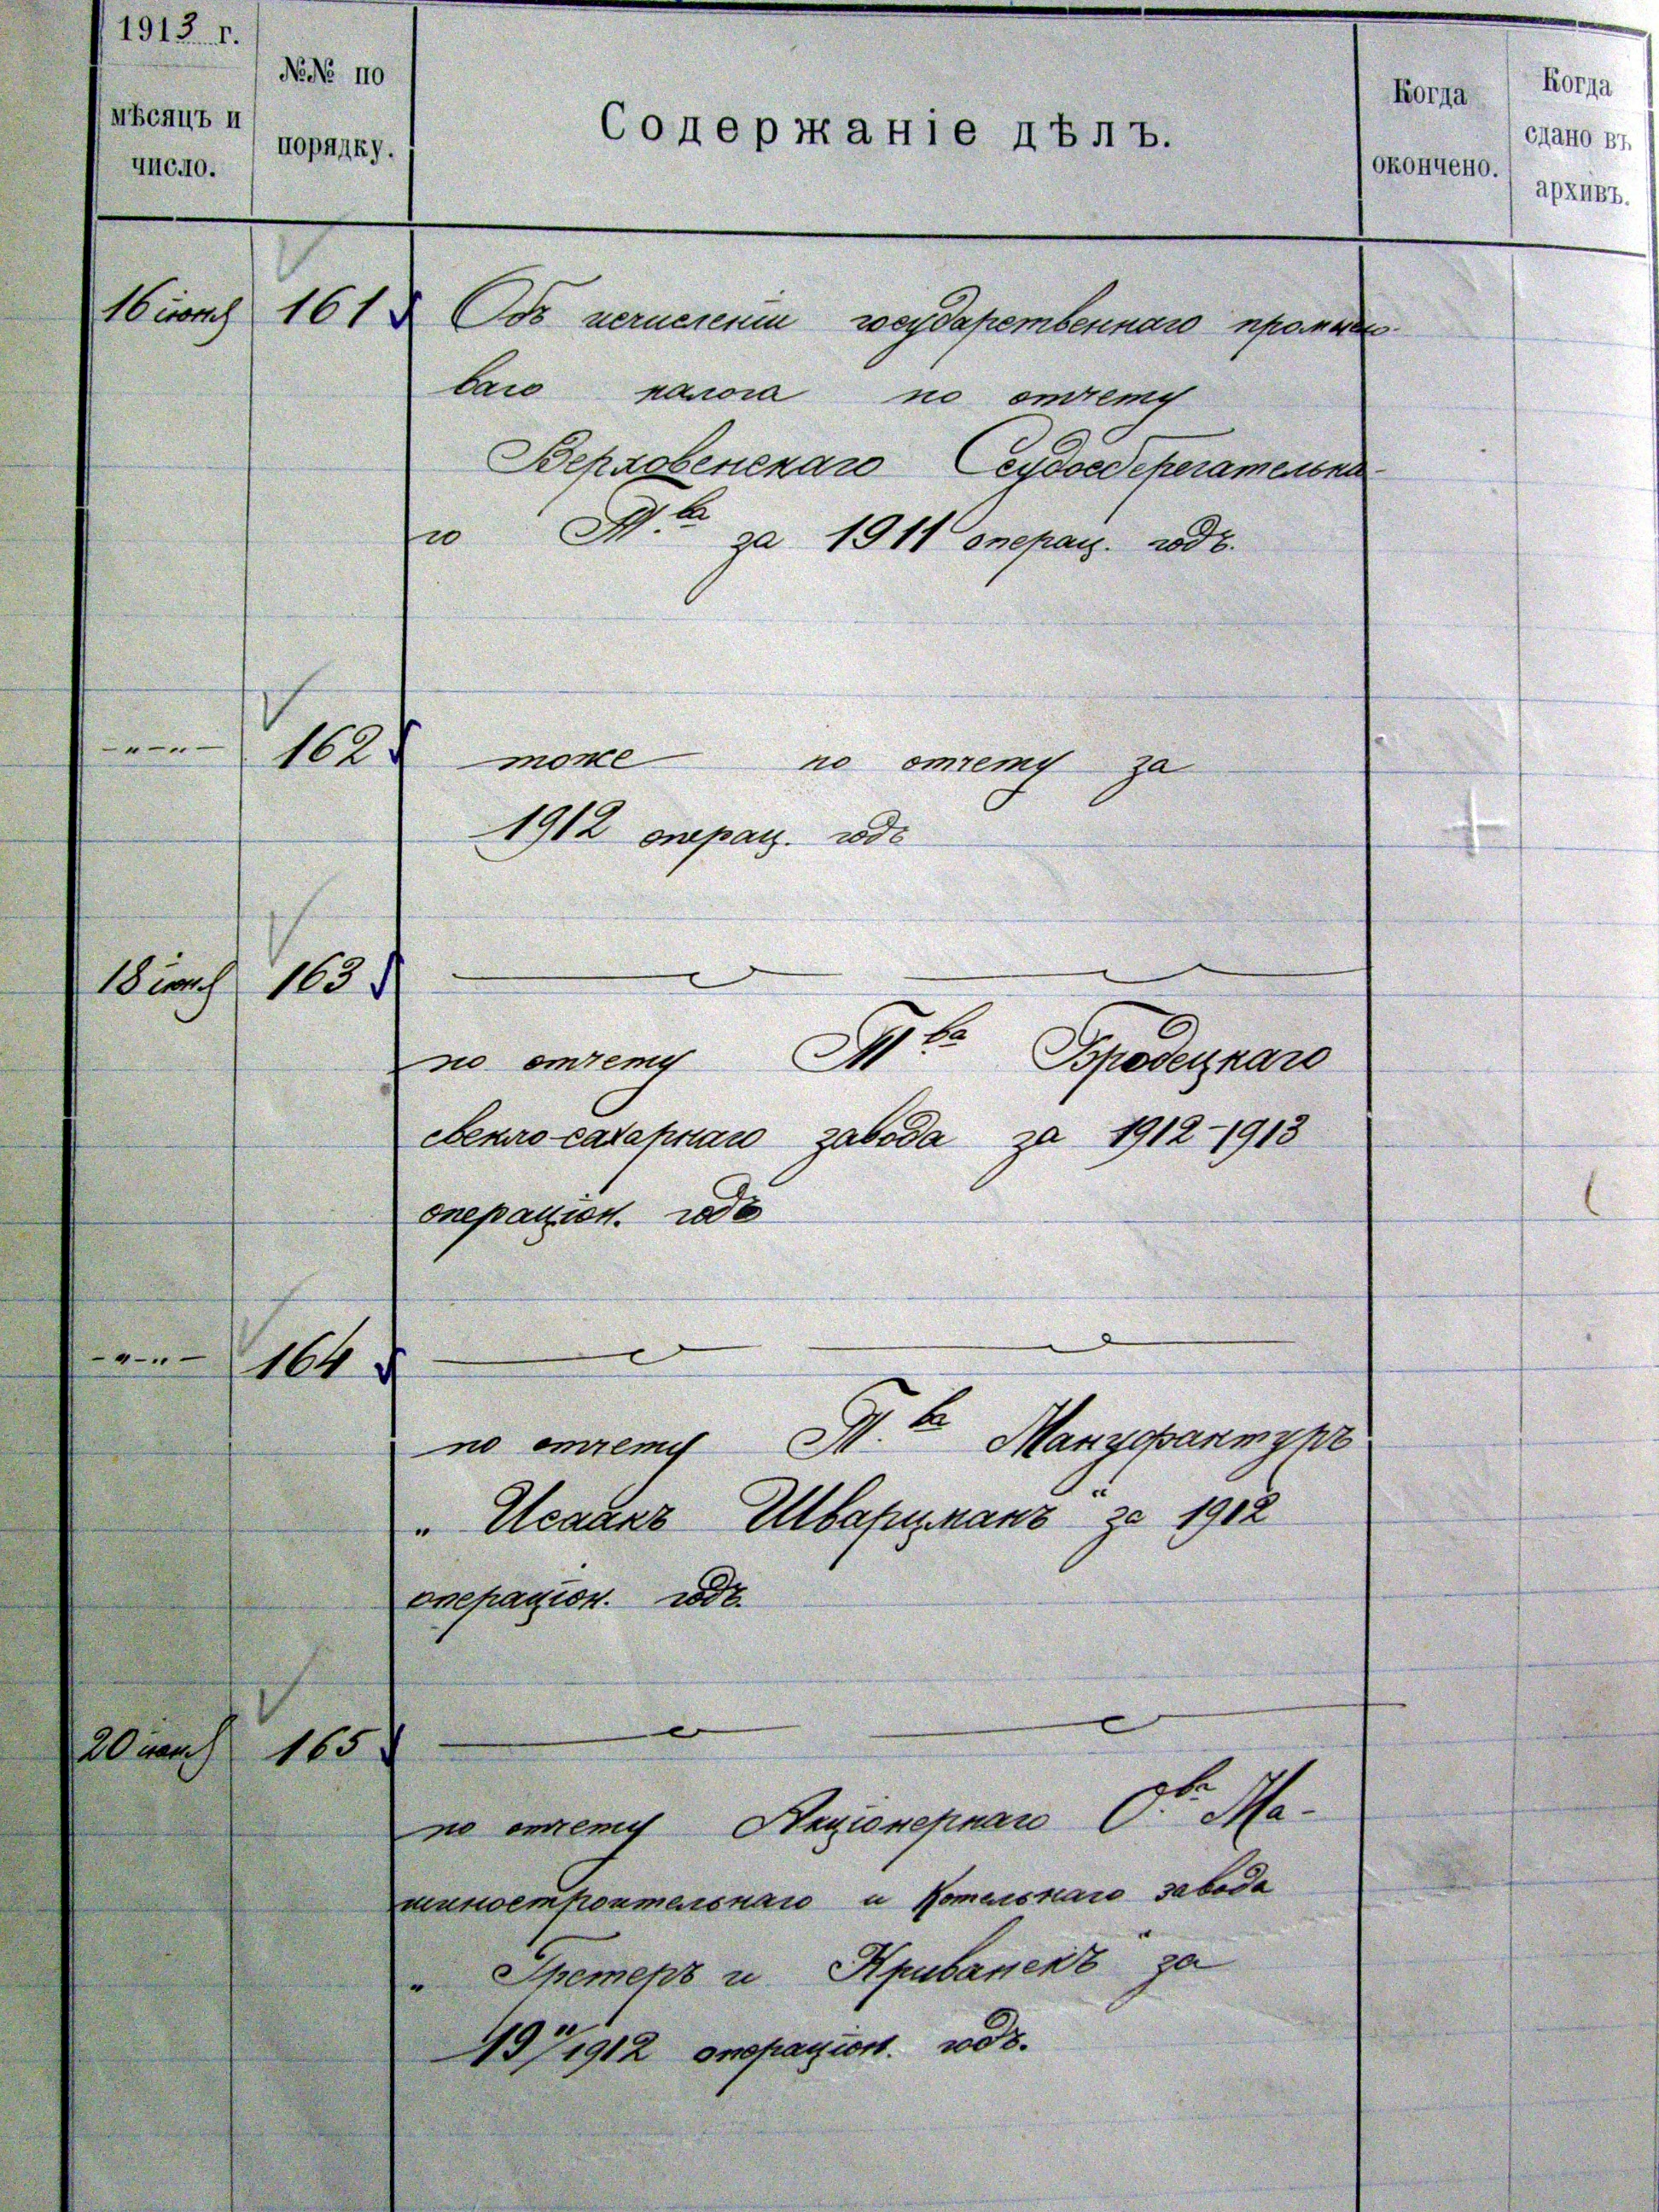 1913 г.
мѣсяцъ и
число.
№№ по
порядку.
Содержаніе дѣлъ.
Когда
окончено.
Когда
сдано въ
архивъ.
16 іюня 161 Объ исчисленіи государственнаго промысло-
ваго налога по отчету
Верховенскаго Ссудосберегательна-
го Т.ва за 1911 операц. годъ.
-"-"- 162 тоже по отчету за
1912 операц. годъ
18 іюня 163
по отчету Т ва Бродецкаго
свекло-сахарнаго завода за 1912-1913
операціон. годъ
-"-"- 164
по отчету Т.ва Мануфактуръ
„Исаакъ Шварцманъ“ за 1912
операціон. годъ.
20 іюня 165
по отчету Акціонернаго О.ва Ма-
шиностроительнаго и Котельнаго завода
„Гретеръ и Криванекъ“ за
1911/1912 операціон. годъ.